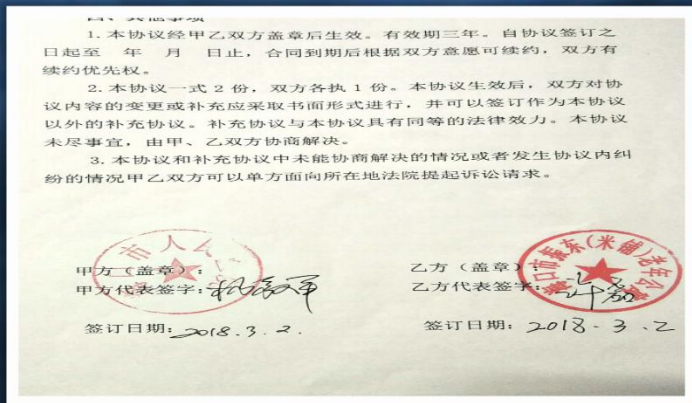 四、其他事项
1.本协议经甲乙双方盖章后生效。有效期三年。自协议签订之
日起至 年 月 日止，合同到期后根据双方意愿可续约，双方有
续约优先权。
2.本协议一式2份，双方各执1份。本协议生效后，双方对协
议内容的变更或补充应采取书面形式进行，并可以签订作为本协议
以外的补充协议。补充协议与本协议具有同等的法律效力。本协议
未尽事宜，由甲、乙双方协商解决。
3.本协议和补充协议中未能协商解决的情况或者发生协议内纠
纷的情况甲乙双方可以单方面向所在地法院提起诉讼请求。
市人
甲方（盖章）：
甲方代表签字：
签订日期：2018.3.2.
口市振东(米铺)老年公
乙方（盖章）：
乙方代表签字：
签订日期：2018.3.2